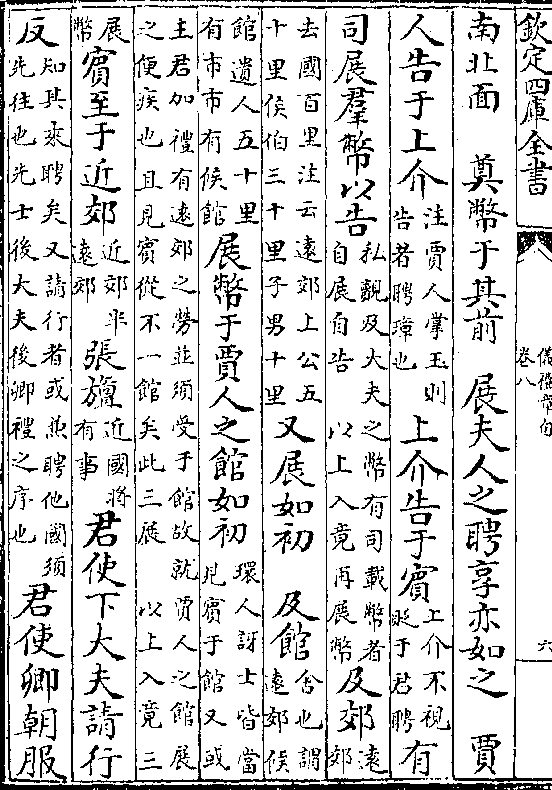 欽定四庫全書
儀禮章句
卷八
六
南北面　奠幣于其前　展夫人之聘享亦如之　賈
人告于上介注賈人掌玉則告者聘璋也上介告于賓上介不視貶于君聘有
司展羣幣以告私覿及大夫之幣有司載幣者自展自告　以上入竟再展幣及郊遠郊
去國百里注云遠郊上公五十里侯伯三十里子男十里又展如初　及館舍也謂遠郊候
館遺人五十里有市市有候館展幣于賈人之館如初環人訝士皆當見賓于館又或
主君加禮有遠郊之勞並須受于館故就賈人之館展之便疾也且見賓從不一館矣此三展　以上入竟三
展幣賓至于近郊近郊半遠郊張旜近國將有事君使下大夫請行
反知其來聘矣又請行者或兼聘他國須先往也先士後大夫後卿禮之序也君使卿朝服